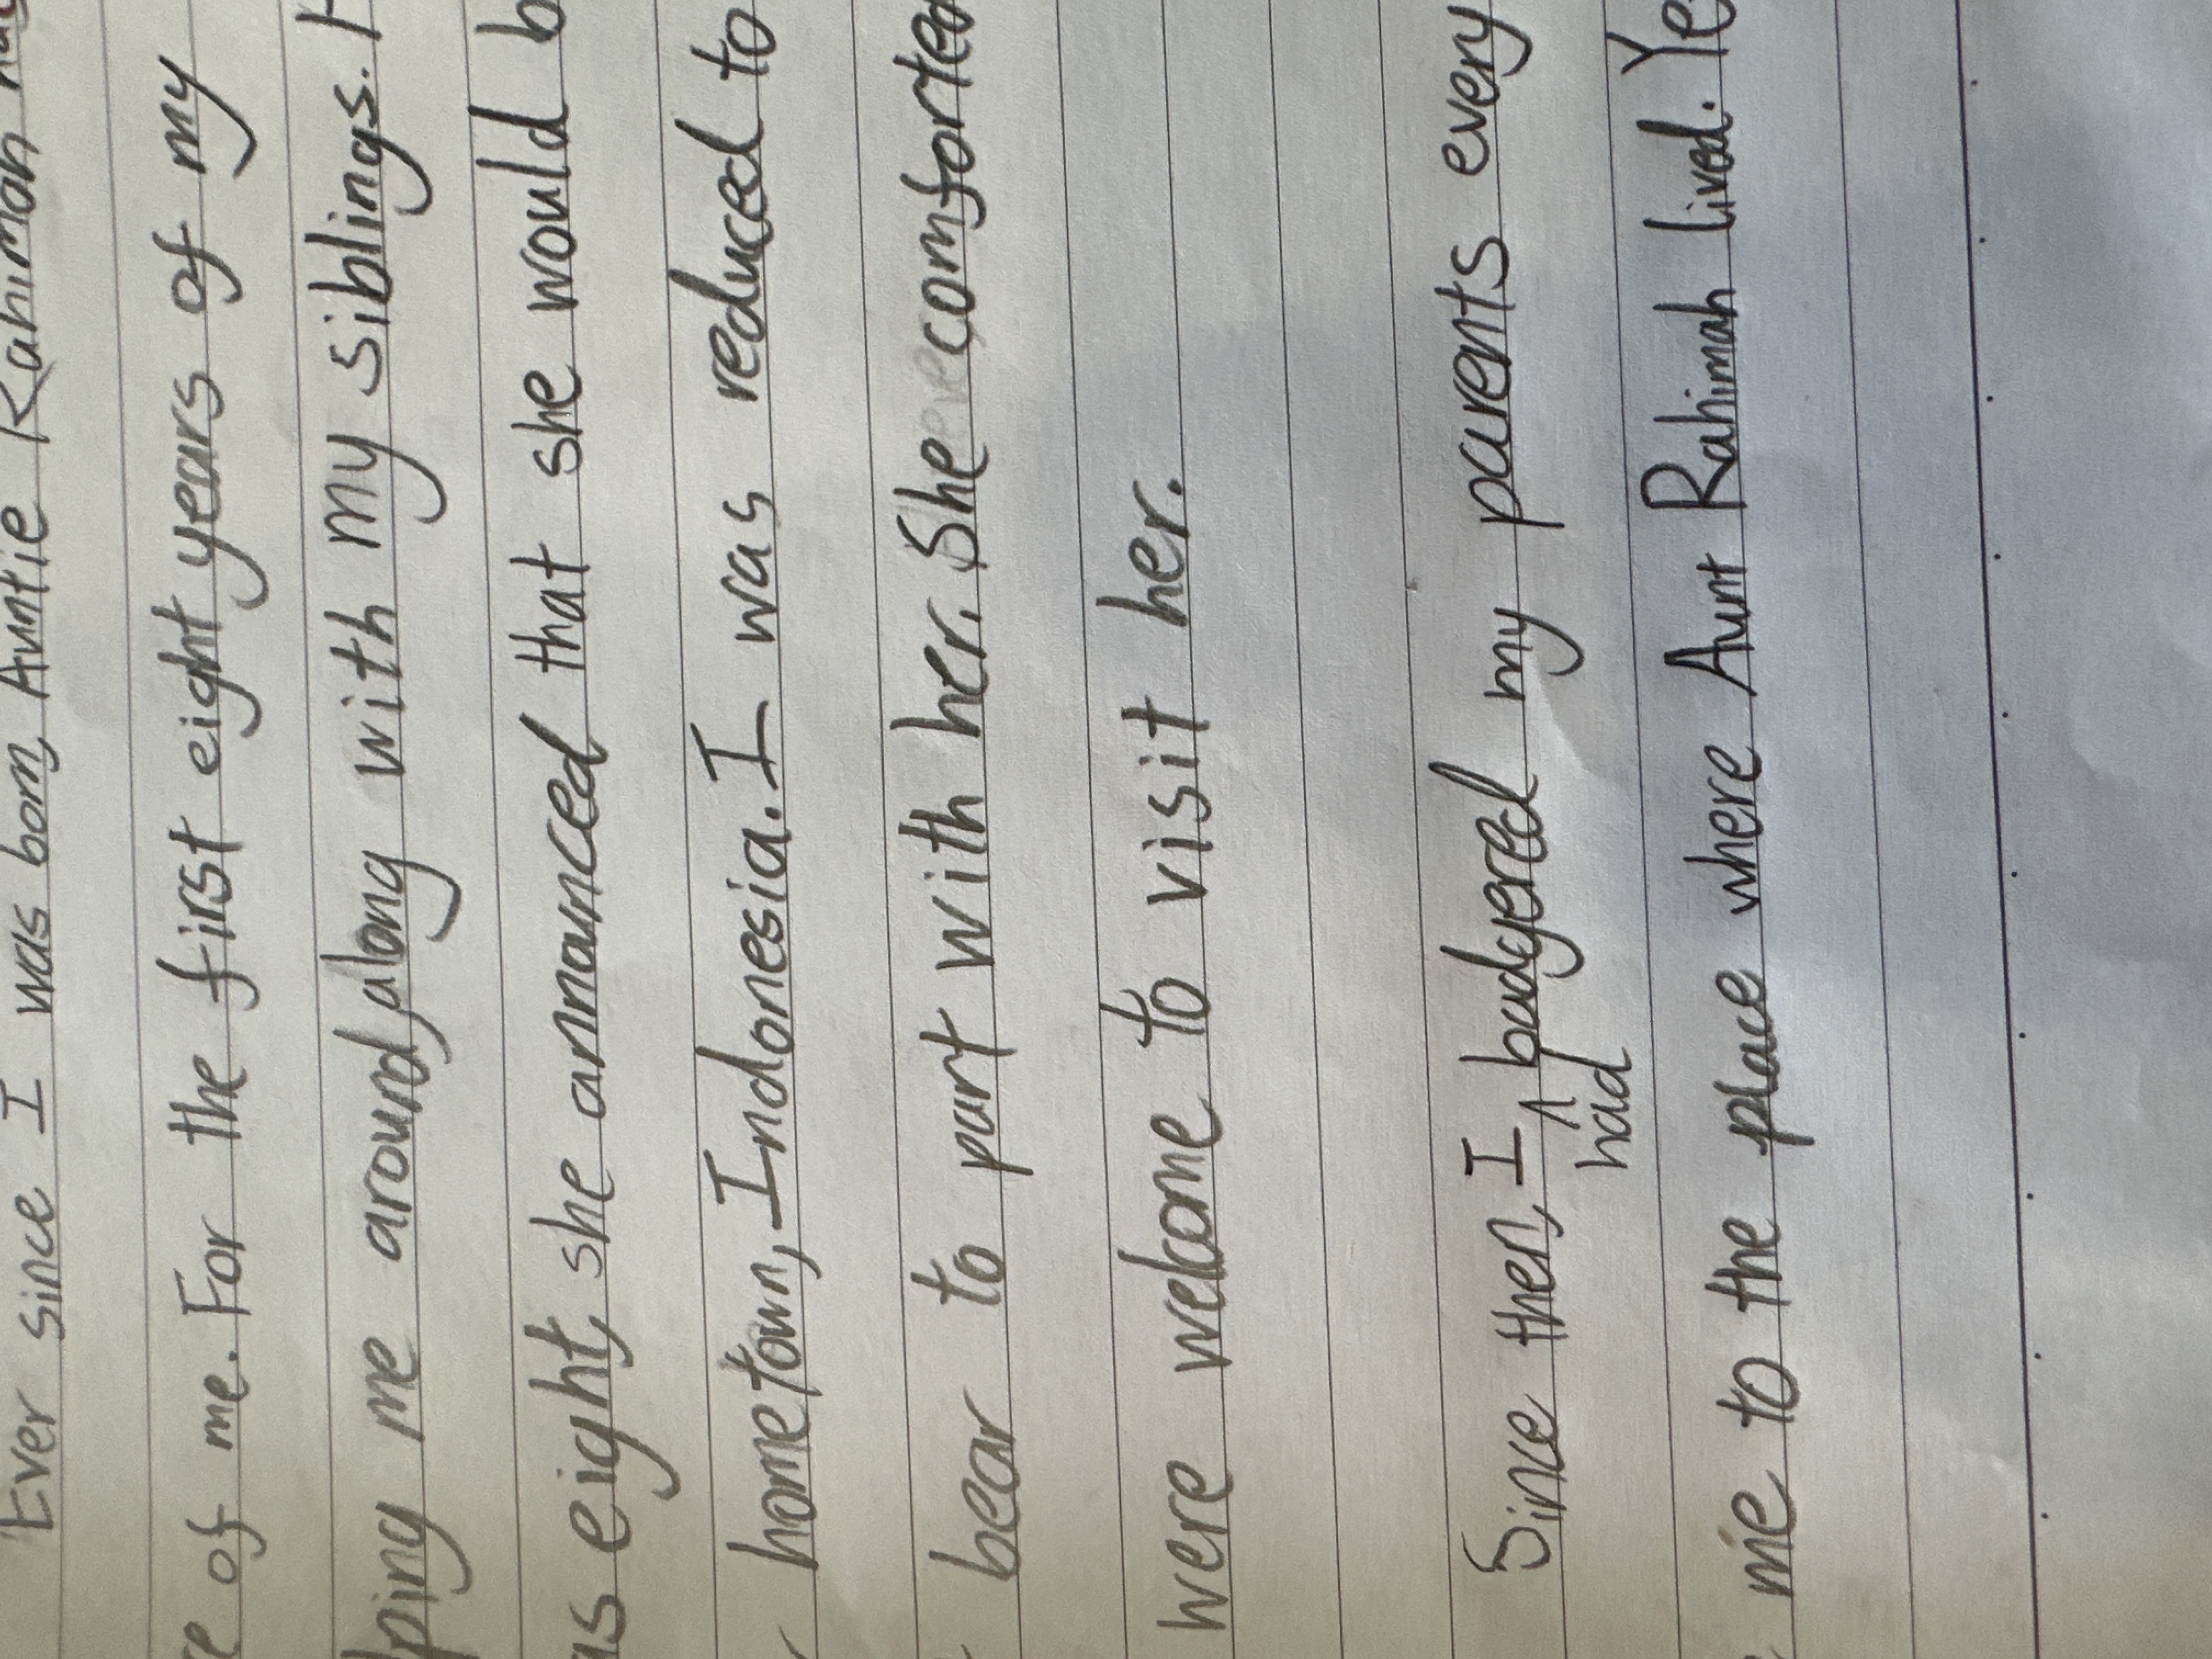 Ever since I was born, Auntie Rahimah
of me. For the first eight years of my
me around, along with my siblings.
eight, she announced that she would
hometown, Indonesia. I was reduced to
bear to part with her. She comforted
were welcome to visit her.
Since then, I had badgered my parents every
me to the place where Aunt Rahimah lived.